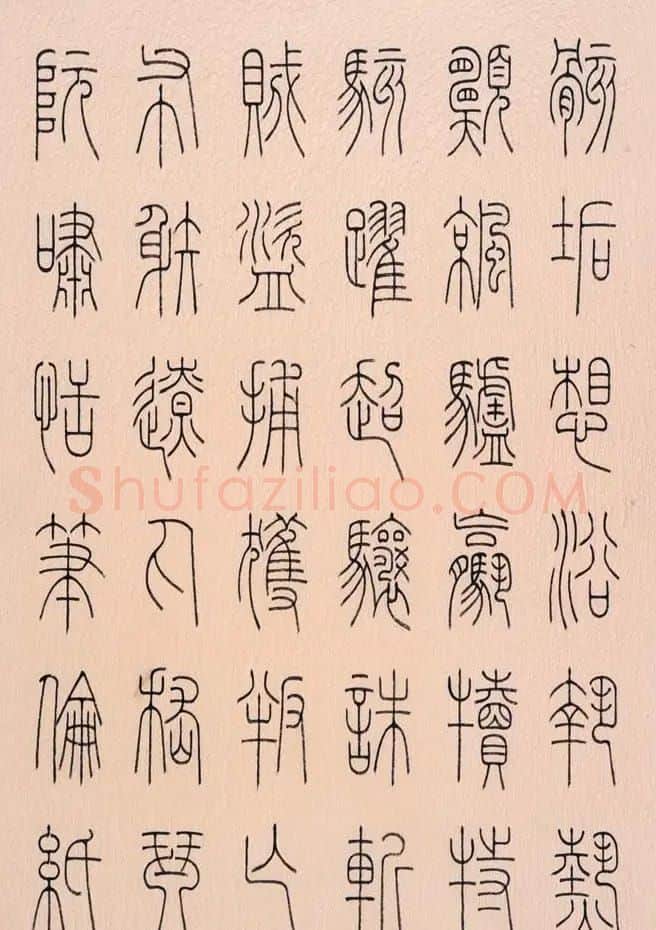 骸垢想浴執熱
願涼驢驘犢特
駭躍超驤誅斬
賊盜捕獲叛亡
布射遼丸嵇琴
阮嘯恬筆倫紙
Shufaziliao.COM